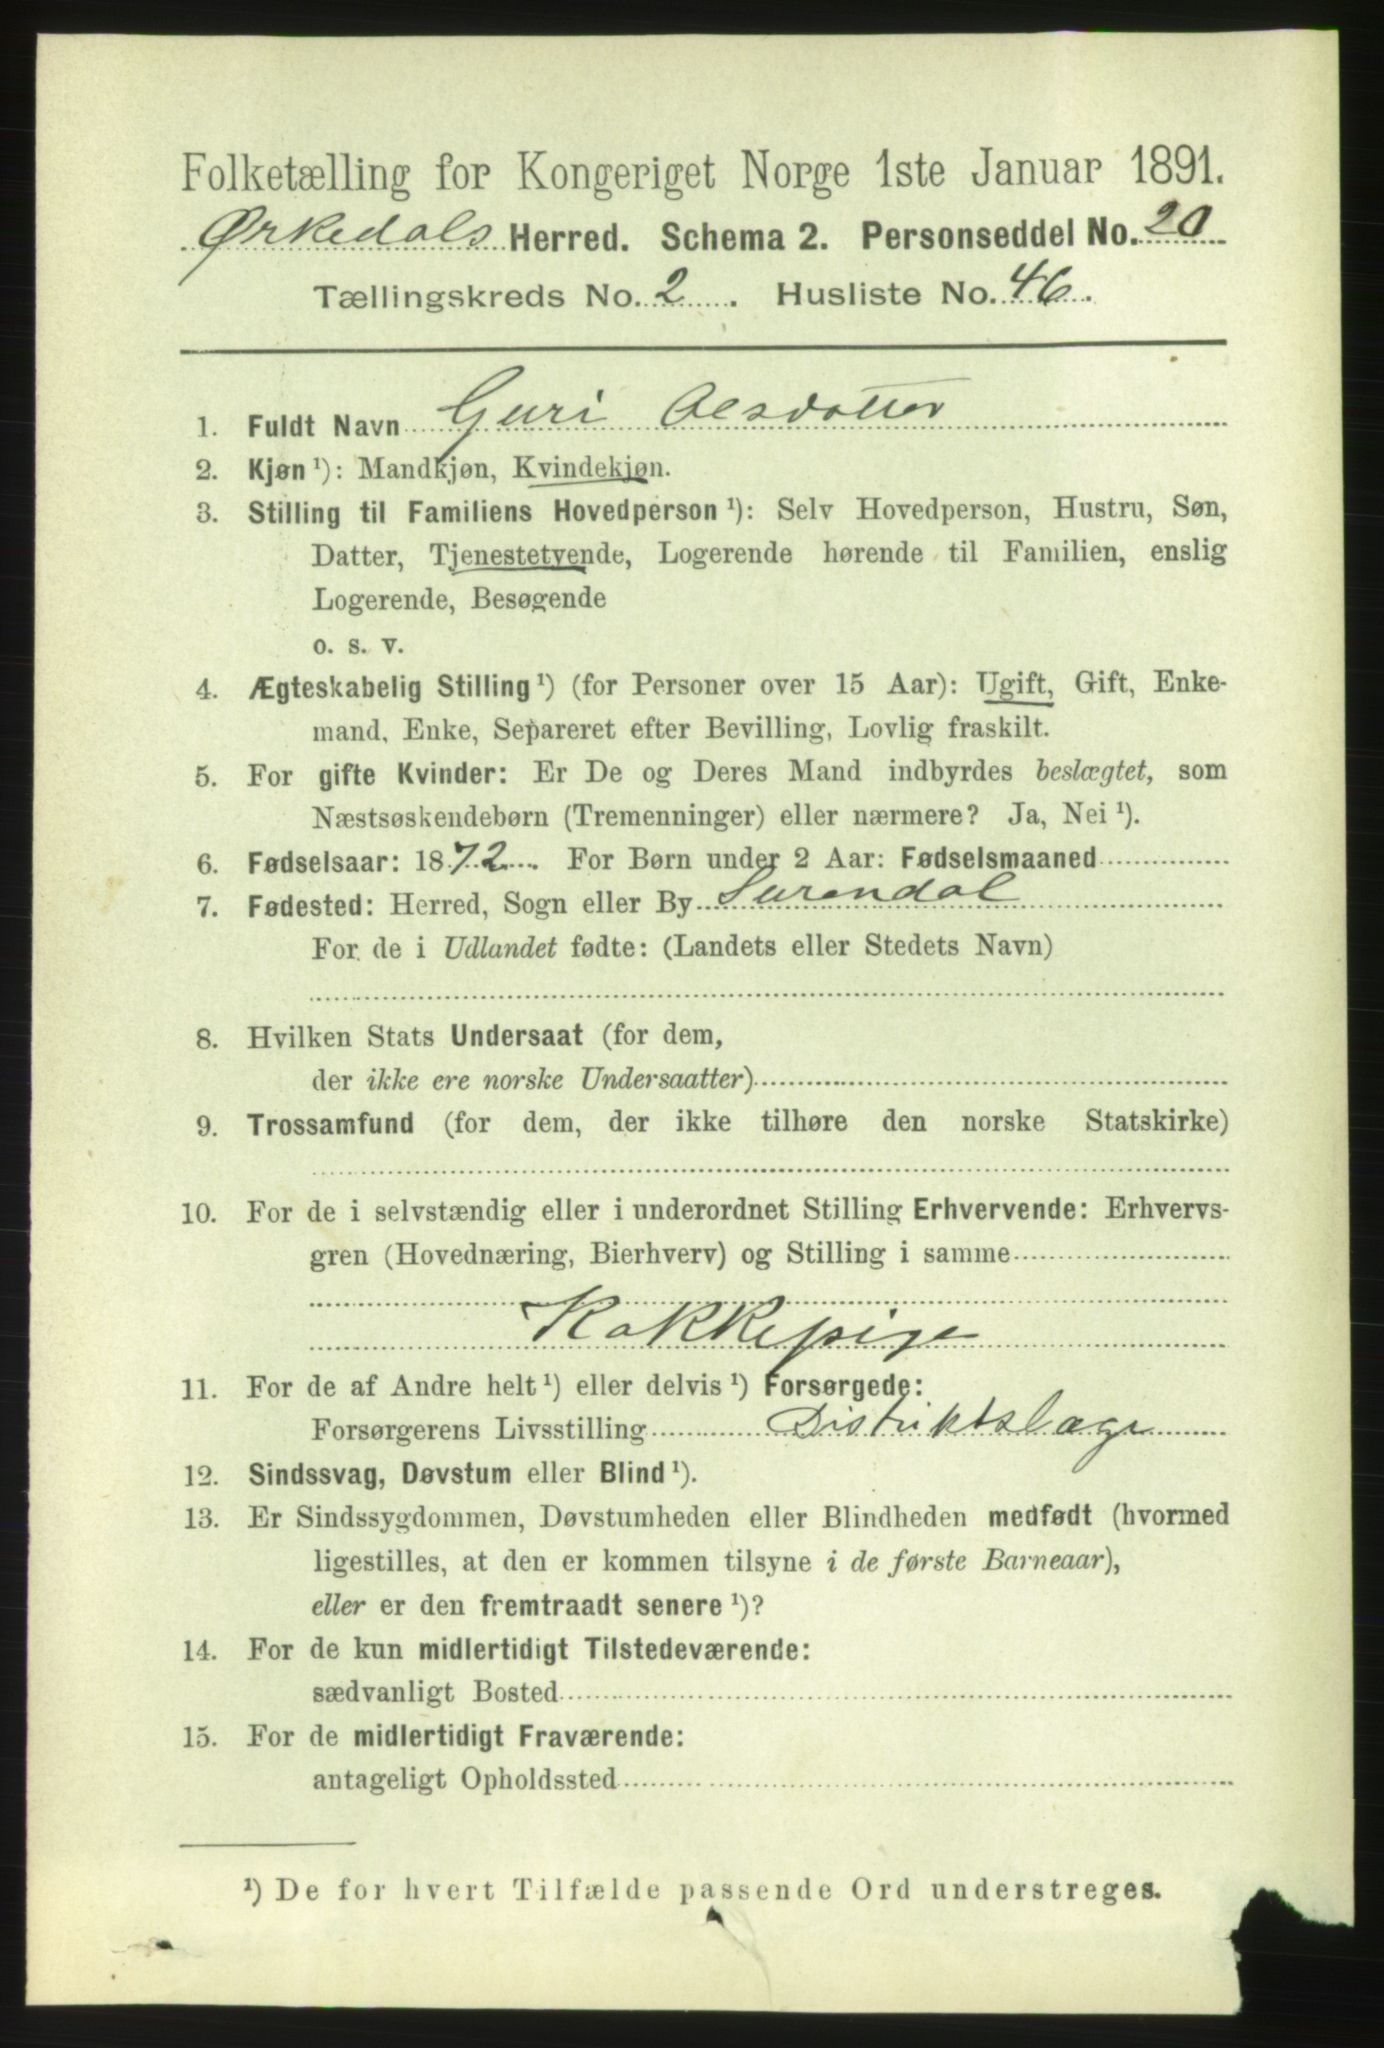 Folketælling for Kongeriget Norge 1ste Januar 1891.
Ørkedals Herred. Schema 2. Personseddel No. 20
Tællingskreds No. 2. Husliste No. 46.
1. Fuldt Navn Guri Olsdatter
2. Kjøn ¹): Mandkjøn, Kvindekjøn.
3. Stilling til Familiens Hovedperson ¹): Selv Hovedperson, Hustru, Søn,
Datter, Tjenestetyende, Logerende hørende til Familien, enslig
Logerende, Besøgende
o. s. v.
4. Ægteskabelig Stilling ¹) (for Personer over 15 Aar): Ugift, Gift, Enke-
mand, Enke, Separeret efter Bevilling, Lovlig fraskilt.
5. For gifte Kvinder: Er De og Deres Mand indbyrdes beslægtet, som
Næstsøskendebørn (Tremenninger) eller nærmere? Ja, Nei ¹).
6. Fødselsaar: 1872. For Børn under 2 Aar: Fødselsmaaned
7. Fødested: Herred, Sogn eller By Surendal
For de i Udlandet fødte: (Landets eller Stedets Navn)
8. Hvilken Stats Undersaat (for dem,
der ikke ere norske Undersaatter)
9. Trossamfund (for dem, der ikke tilhøre den norske Statskirke)
10. For de i selvstændig eller i underordnet Stilling Erhvervende: Erhvervs-
gren (Hovednæring, Bierhverv) og Stilling i samme
Kokkepige
11. For de af Andre helt ¹) eller delvis ¹) Forsørgede:
Forsørgerens Livsstilling Distriktslæge
12. Sindssvag, Døvstum eller Blind ¹).
13. Er Sindssygdommen, Døvstumheden eller Blindheden medfødt (hvormed
ligestilles, at den er kommen tilsyne i de første Barneaar),
eller er den fremtraadt senere ¹)?
14. For de kun midlertidigt Tilstedeværende:
sædvanligt Bosted
15. For de midlertidigt Fraværende:
antageligt Opholdssted
¹) De for hvert Tilfælde passende Ord understreges.